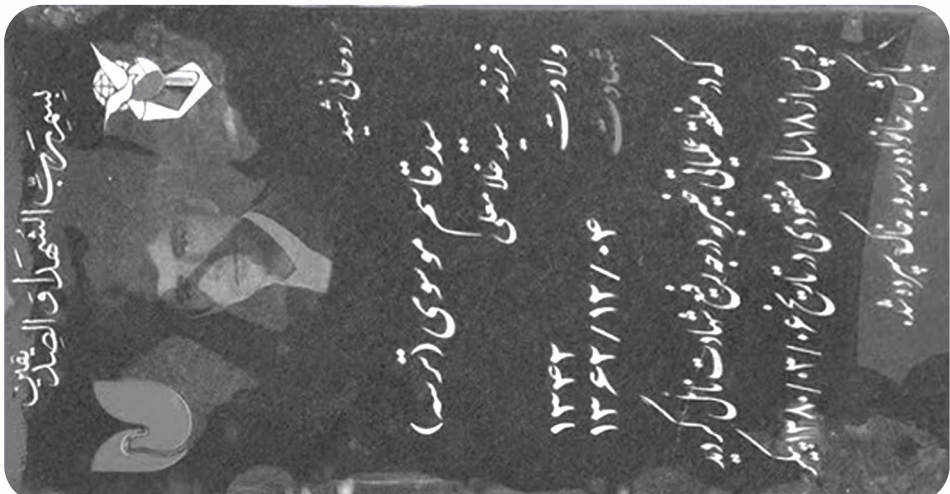 بسم رب الشهدا و الصدیقین
روحانی شهید
سید قاسم موسوی (ترسه)
فرزند سید غلامعلی
ولادت ۱۳۴۲
شهادت ۱۳۶۲/۱۲/۰۴
که در منطقه عملیاتی خیبر به درجه رفیع شهادت نائل گردید
و پس از ۱۸ سال مفقودی در تاریخ ۱۳۸۰/۰۳/۰۶ پیکر
پاکش به خانواده رسید و به خاک سپرده شد